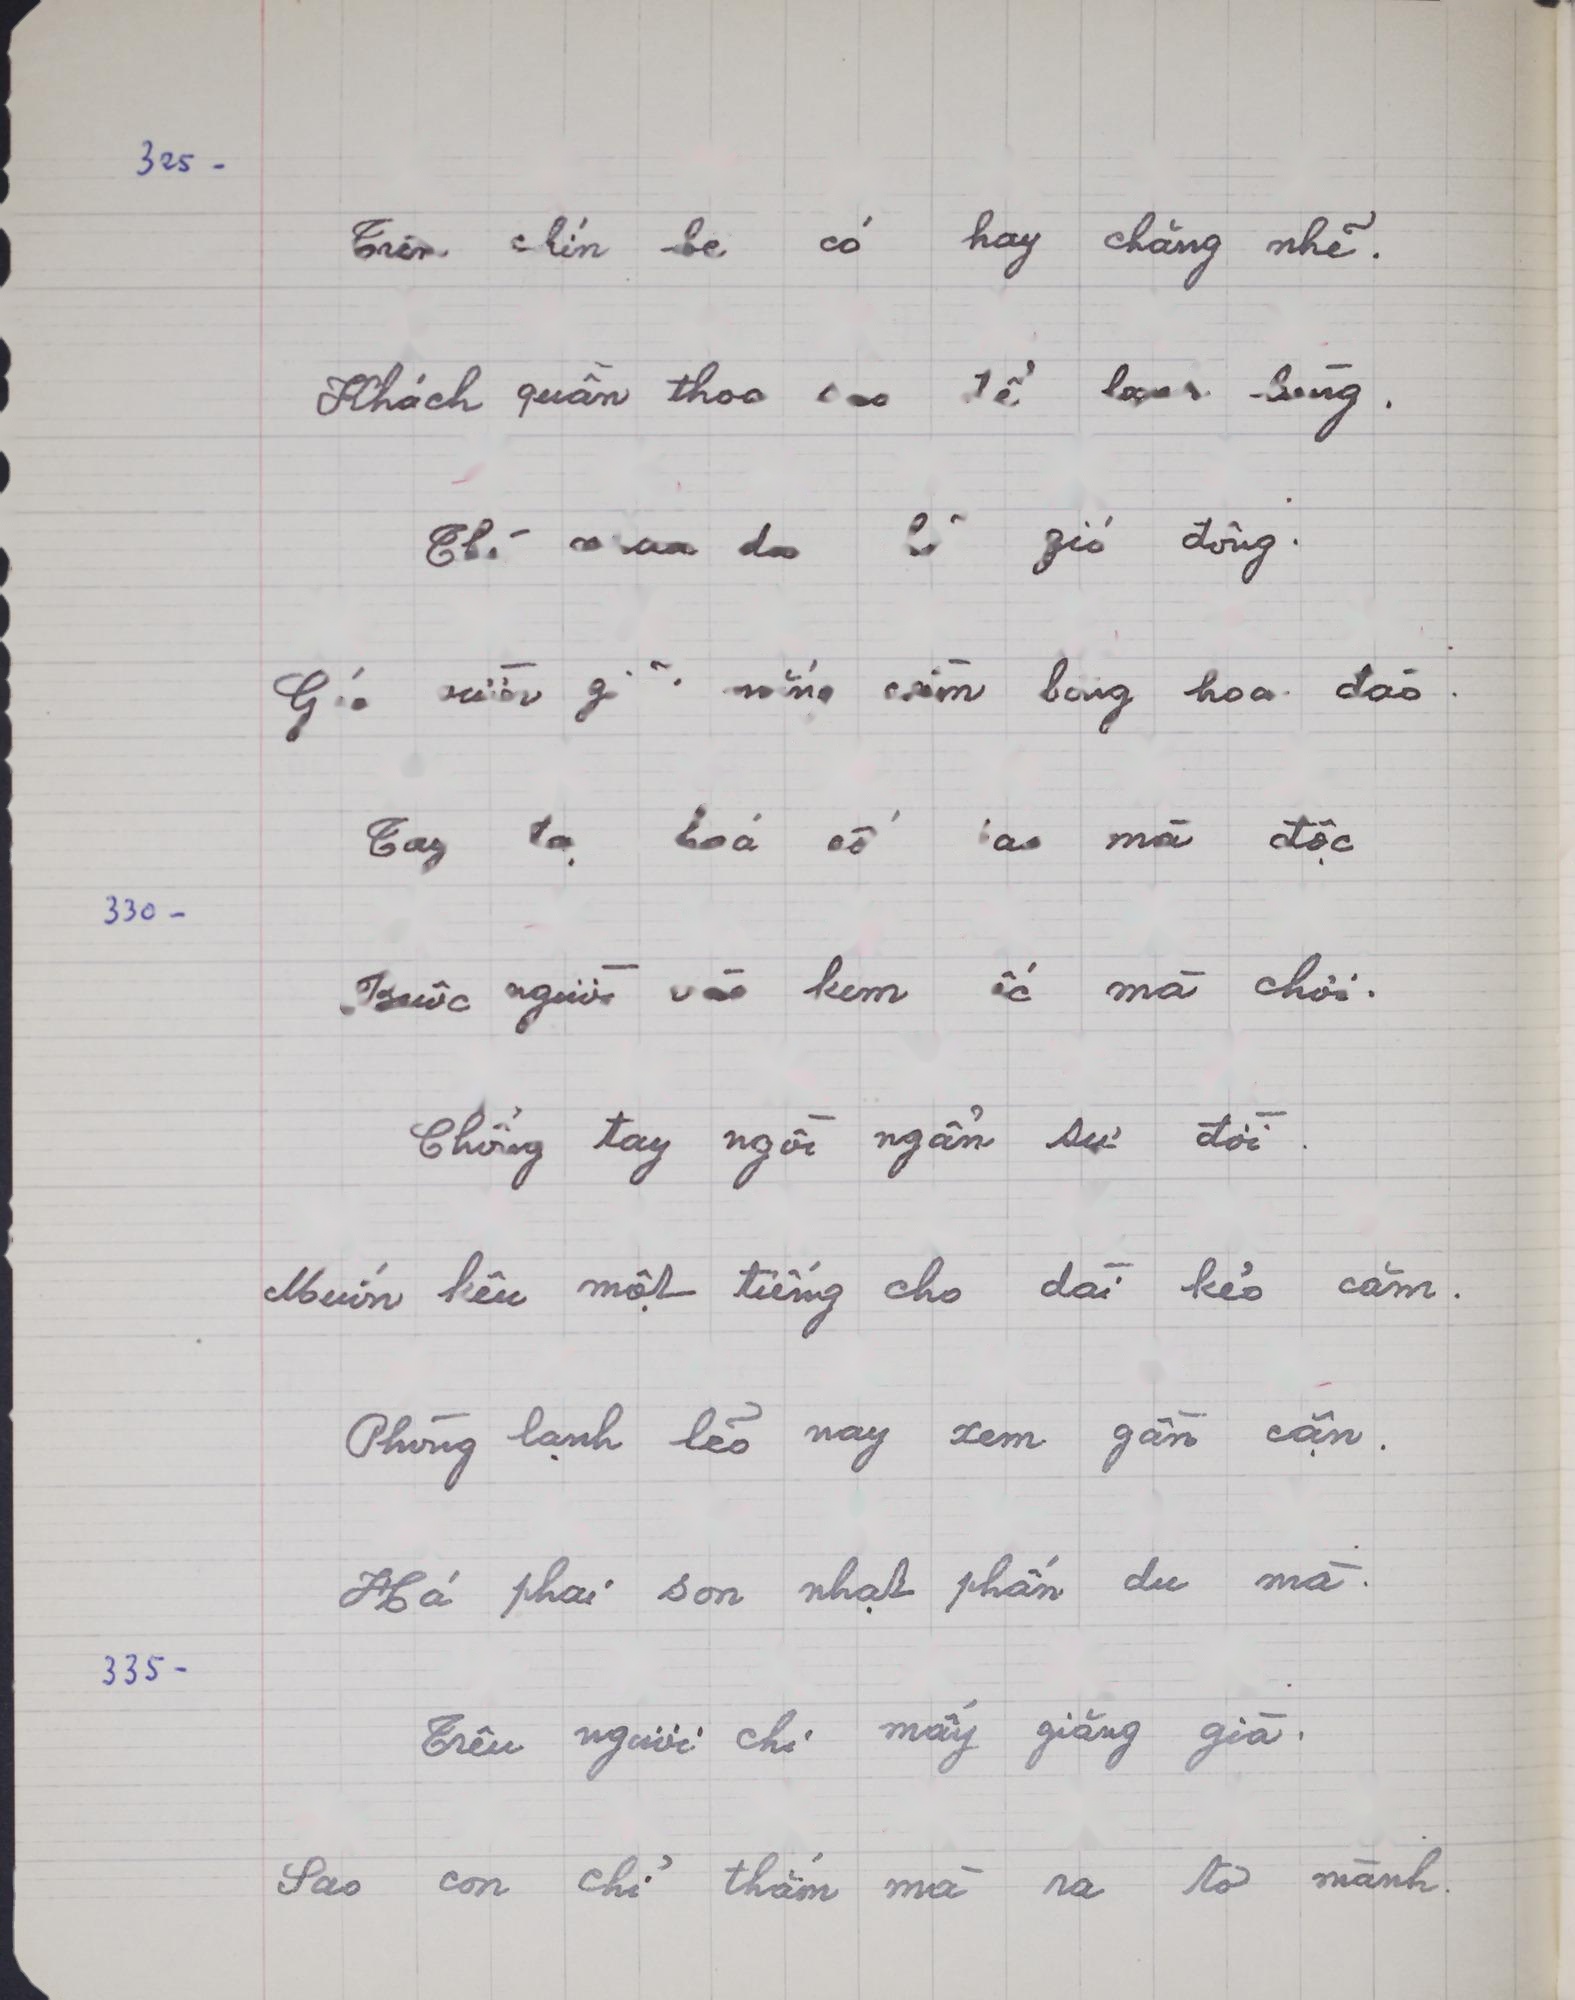 325 -
Trên chín bệ có hay chăng nhẽ.
Khách quần thoa để lạnh lùng.
gió đông.
Gió cầm bông hoa đào.
Tay tạo hoá cớ sao mà độc
330 -
Buộc người vào kim ốc mà chơi.
Chống tay ngồi ngẩn sự đời.
Muốn kêu một tiếng cho dài kẻo căm.
Phòng lạnh lẽo nay xem gần cặn.
Há phai son nhạt phấn du mà.
335 -
Trêu người chi mấy giăng già.
Sao con chỉ thắm mà ra tơ mành.